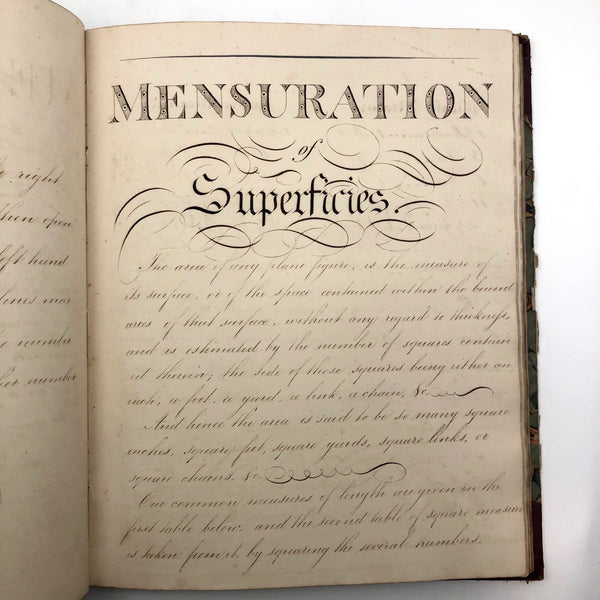 e right
then open
left hand
lines mar
e number
her number
MENSURATION
of
Superficies.
The area of any plane figure, is the measure of
its surface, or of the space contained within the bound
aries of that surface, without any regard to thickness,
and is estimated by the number of squares contain
ed therein; the side of those squares being either an
inch, a foot, a yard, a link, a chain, &c.
And hence the area is said to be so many square
inches, square feet, square yards, square links, or
square chains, &c.
Our common measures of length are given in the
first table below, and the second table of square measure
is taken from it, by squaring the several numbers.